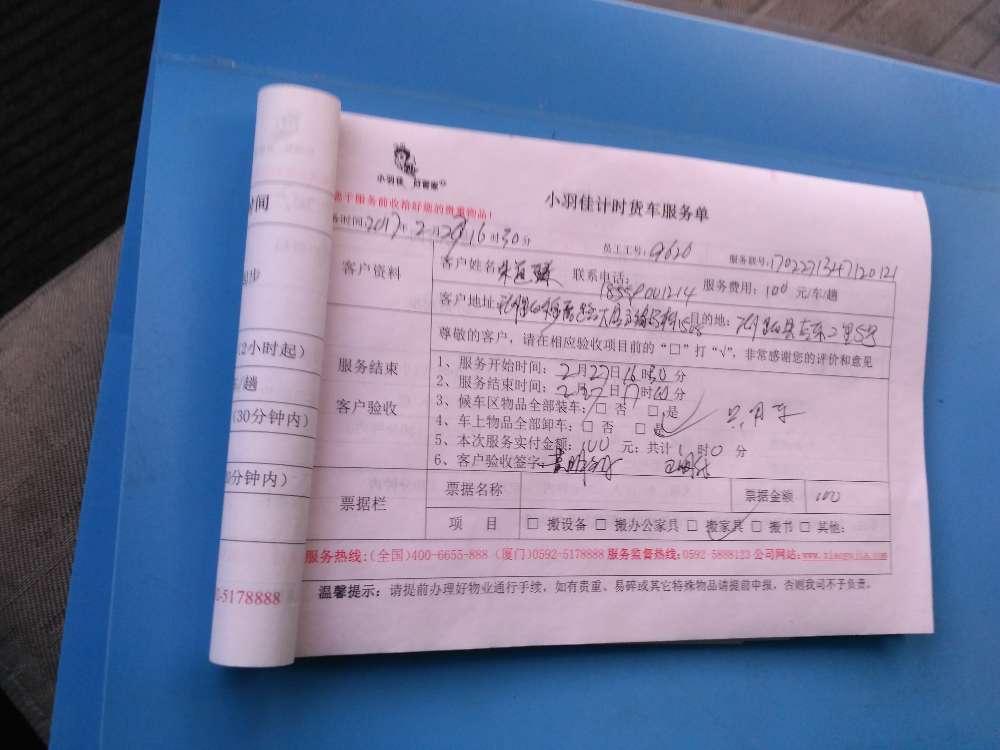 小羽佳
小羽佳计时货车服务单
您于服务前收拾好您的贵重物品!
时间:2017年2月27日16时30分 员工工号:9620 服务联号:17022713247120121
客户资料 客户姓名: 联系电话: 服务费用:100元/车/趟
客户地址: 目的地:
尊敬的客户,请在相应验收项目前的“□”打“√”,非常感谢您的评价和意见
服务结束
客户验收
1、服务开始时间:2月27日16时30分
2、服务结束时间:2月27日17时30分
3、候车区物品全部装车:□ 否 □ 是
4、车上物品全部卸车:□ 否 □ 是 只用车
5、本次服务实付金额:100元:共计1时0分
6、客户验收签字:
票据栏 票据名称 票据金额 100
项 目 □ 搬设备 □ 搬办公家具 □ 搬家具 □ 搬书 □ 其他:
服务热线:(全国)400-6655-888 (厦门)0592-5178888 服务监督热线:0592-5888123 公司网站:www.xiaoyujia.com
温馨提示:请提前办理好物业通行手续,如有贵重、易碎或其它特殊物品请提前申报,否则我司不予负责。
时间
步
(2小时起)
/趟
(30分钟内)
0分钟内)
-5178888